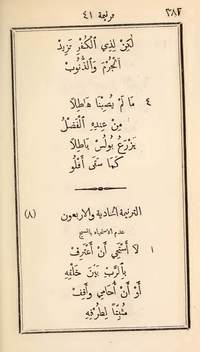 ترنيمة ٤١
لٰكِنْ لِذِي ٱلْكُفْرِ تَزِيدْ
ٱلْجُرْمَ وَٱلذُّنُوبْ
٤ مَا لَمْ يُصِبْنَا هَاطِلًا
مِنْ عِنْدِهِ ٱلْفَضْلُ
يَزْرَعُ بُولُسْ بَاطِلًا
كَمَا سَقَى أَفُلُّو
الترنيمة الحادية والاربعون (٨)
عدم الاستحياء بالمسيح
١ لَا أَسْتَحِي أَنْ أَعْتَرِفْ
بِٱلرَّبِّ بَيْنَ خَلْقِهِ
أَوْ أَنْ أُحَامِي وَأَقِفْ
مُثَبَّتًا لِطُرْقِهِ